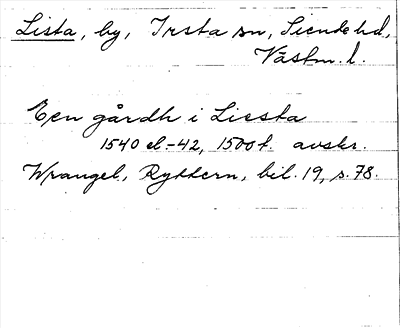 Lista, by, Irsta sn, Siende hd,
Västm. l.
Een gårdh i Liesta
1540 el -42, 1500t. avskr.
Wrangel, Ryttern, bil. 19, s. 78.